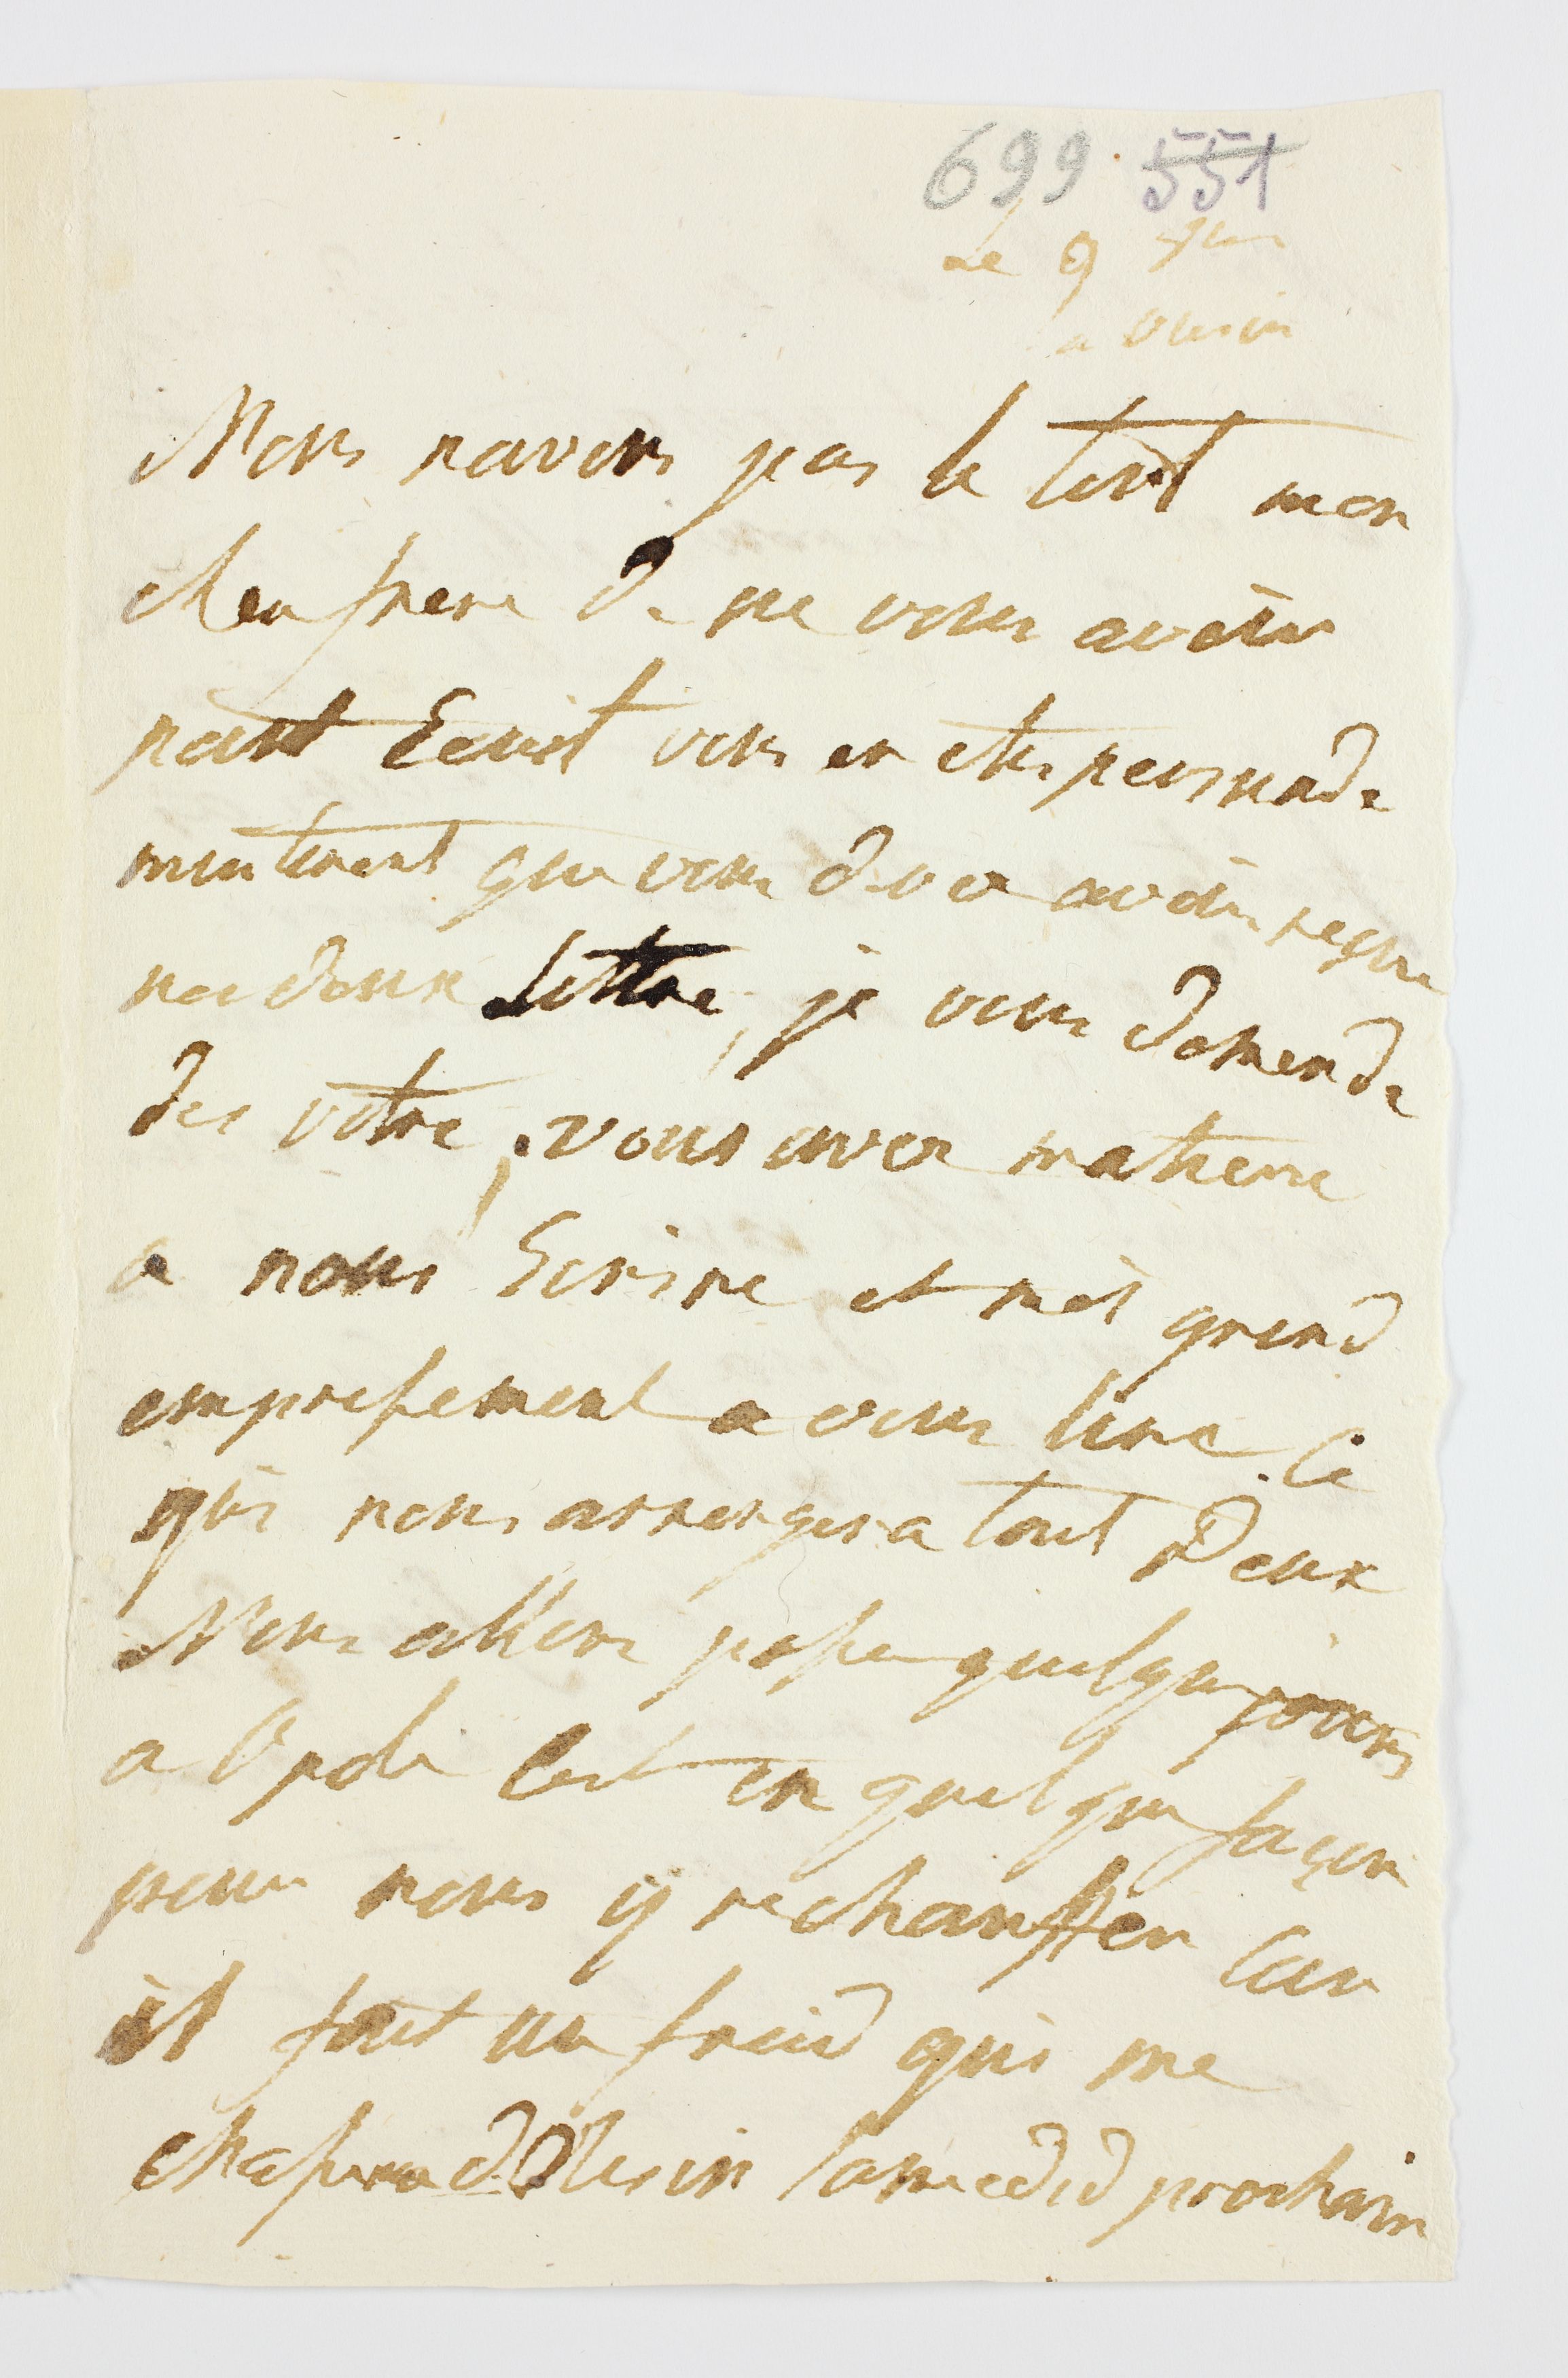 699 551
Le 9 7bre
a Olesin
Nous navons pas le tort mon
cher frere de ne vous avoir
point Ecrit vous en etes persuade
mintenent que vous devez avoir reçue
nos deux lettre, je vous demende
des votre, vous avez matierre
a nous Ecrire et moi grend
empressement a vous lire. Ce
qui nous arrengera tout Deux
Nous allons passer quelque jours
a Opole Cest en quelque façon
pour nous y rechauffer Car
il fait un froid qui me
chassera dOlesin samedid prochain